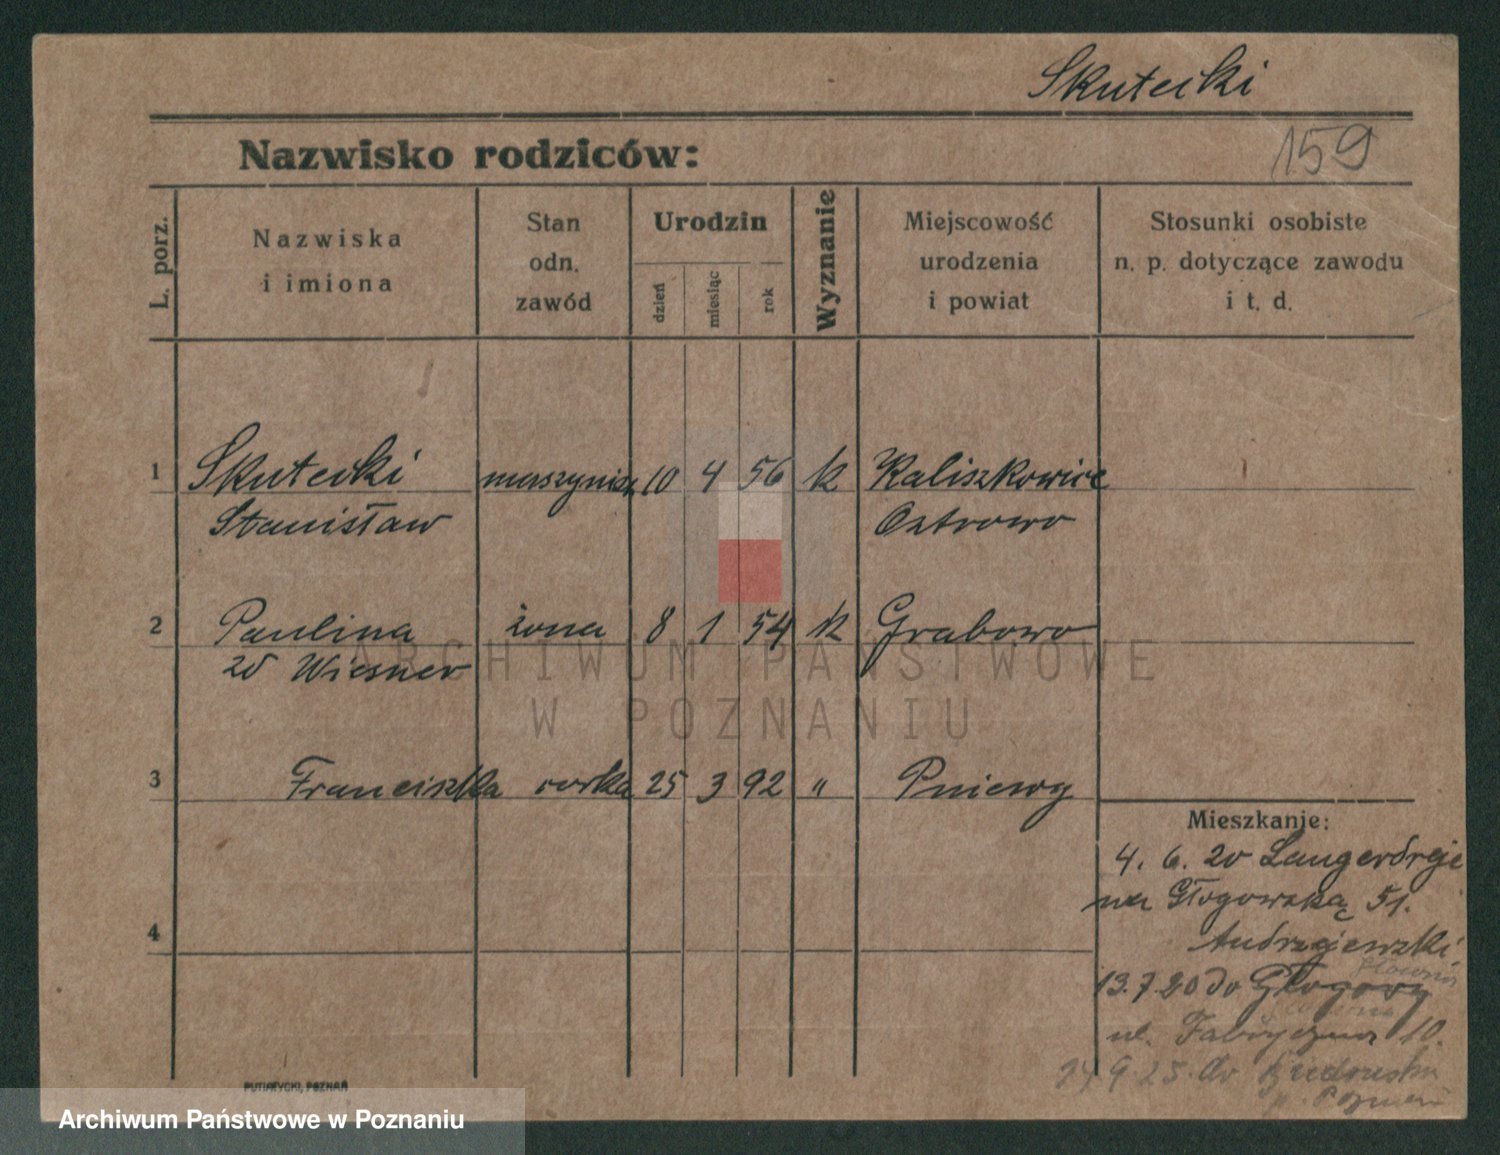 Skutecki
159
Nazwisko rodziców:
L. porz.
Nazwiska
i imiona
Stan
odn.
zawód
Urodzin
dzień
miesiąc
rok
Wyznanie
Miejscowość
urodzenia
i powiat
Stosunki osobiste
n. p. dotyczące zawodu
i t. d.
1 Skutecki maszynisz 10 4 56 k Kaliszkowice
Stanisław Ostrowo
2 Paulina żona 8 1 54 k Grabowo
zd Wiesner
ARCHIWUM PAŃSTWOWE
W POZNANIU
3 Franciszka corka 25 3 92 " Pniewy
Mieszkanie:
4. 6. 20
na Głogowską 51.
4
Andrzejewski
13.7.20 do
ul. Fabryczna 10.
PUTIATYCKI, POZNAŃ
Archiwum Państwowe w Poznaniu